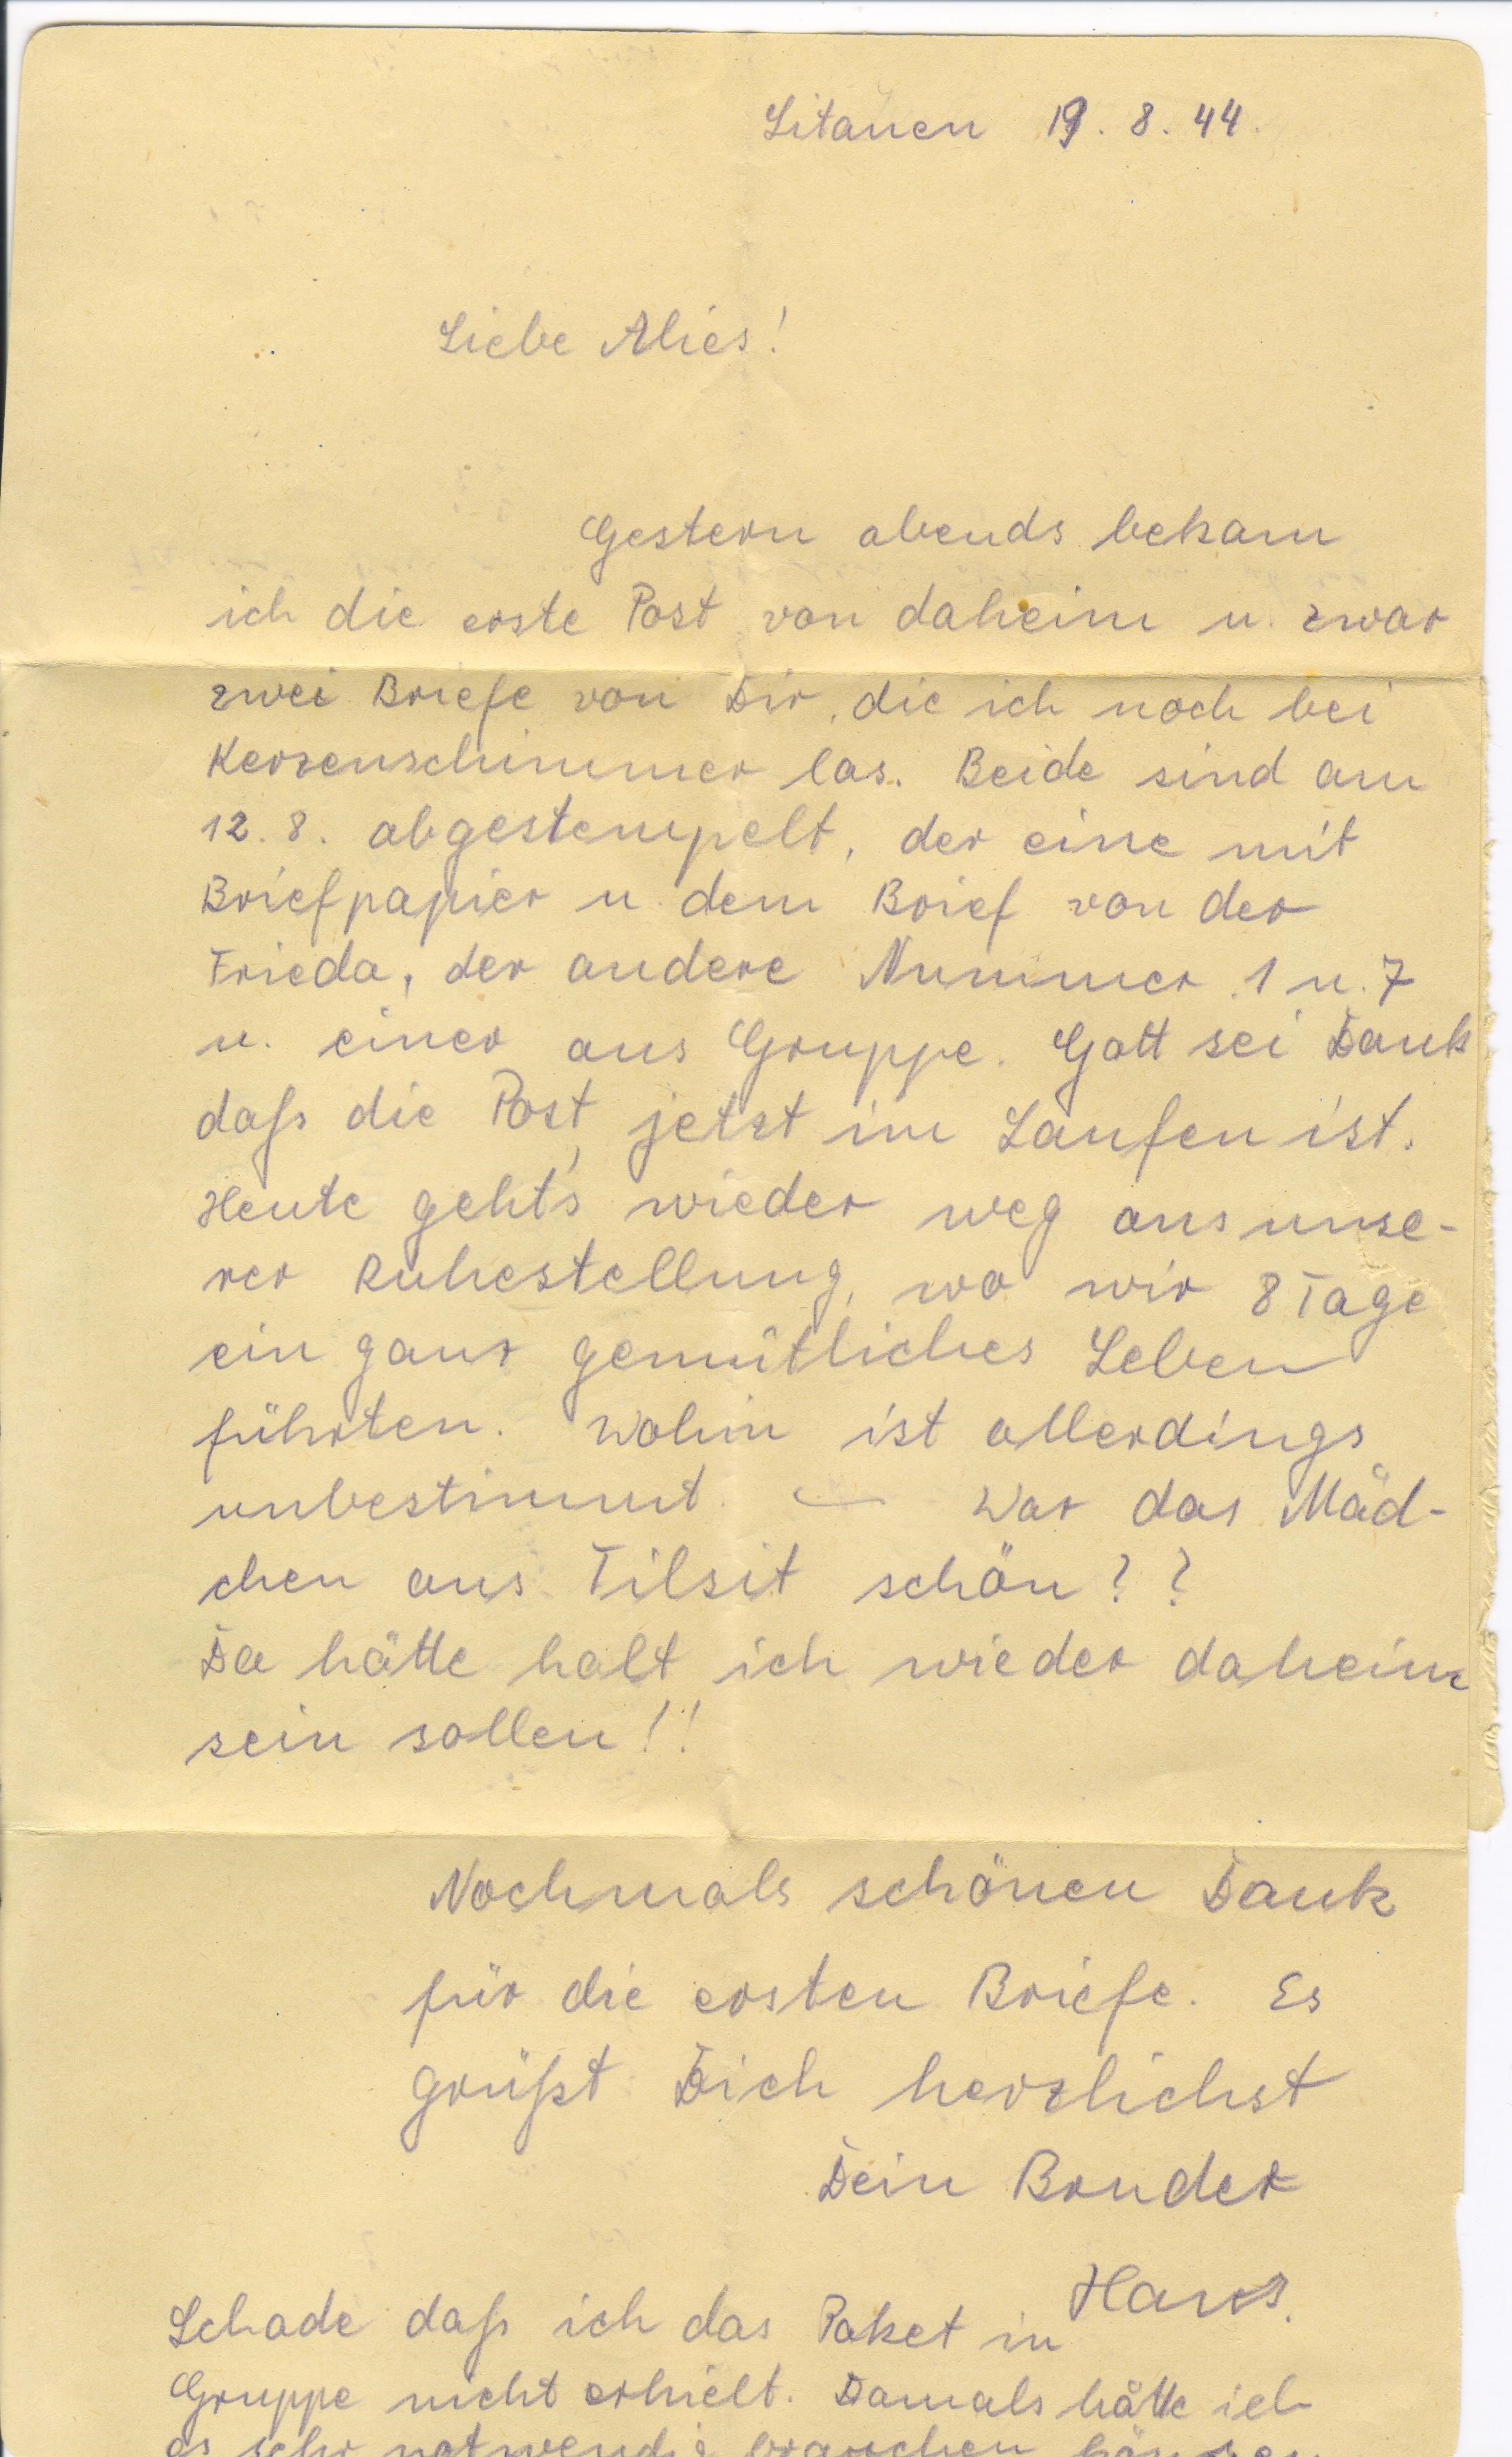 Litauen 19. 8. 44.
Liebe Alies!
Gestern abends bekam
ich die erste Post von daheim u. zwar
zwei Briefe von Dir, die ich noch bei
Kerzenschimmer las. Beide sind am
12. 8. abgestempelt, der eine mit
Briefpapier u. dem Brief von der
Frieda, der andere Nummer 1 u. 7
u. einer aus Gruppe. Gott sei Dank
daß die Post jetzt im Laufen ist.
Heute geht's wieder weg aus unse-
rer Ruhestellung, wo wir 8 Tage
ein ganz gemütliches Leben
führten. Wohin ist allerdings
unbestimmt. — War das Mäd-
chen aus Tilsit schön??
Da hätte halt ich wieder daheim
sein sollen!!
Nochmals schönen Dank
für die ersten Briefe. Es
grüßt Dich herzlichst
Dein Bruder
Hans.
Schade daß ich das Paket in
Gruppe nicht erhielt. Damals hätte ich
es sehr notwendig brauchen können